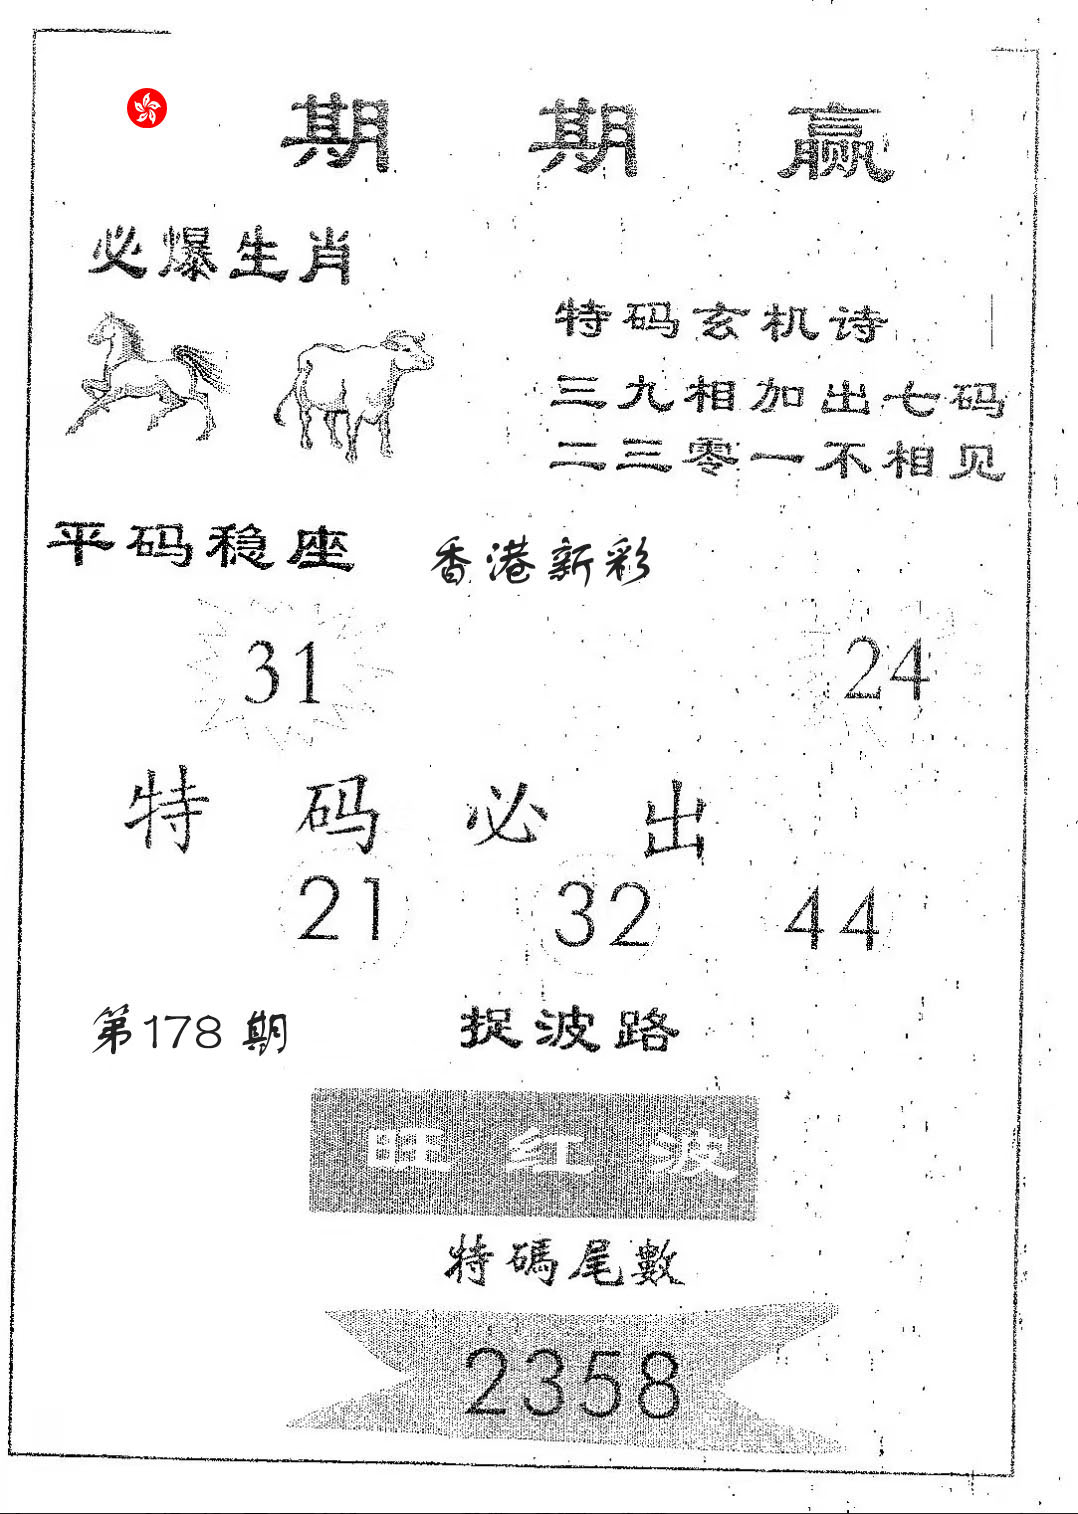 期期赢
必爆生肖
特码玄机诗
三九相加出七码
二三零一不相见
平码稳座
香港新彩
31
24
特码必出
21
32
44
第178期
捉波路
旺红波
特碼尾數
2358